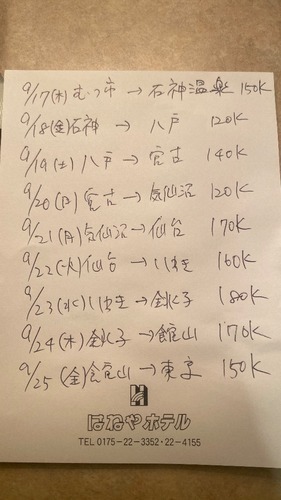 9/17(木) むつ市 → 石神温泉 150K
9/18(金)石神 → 八戸 120K
9/19(土) 八戸 → 宮古 140K
9/20(月) 宮古→気仙沼 120K
9/21(月)気仙沼→仙台 170K
9/22(火)仙台 →いわき 160K
9/23(水)いわき→銚子 180K
9/24(木)銚子→館山 170K
9/25(金)館山→東京 150K
はねやホテル
TEL 0175-22-3352・22-4155